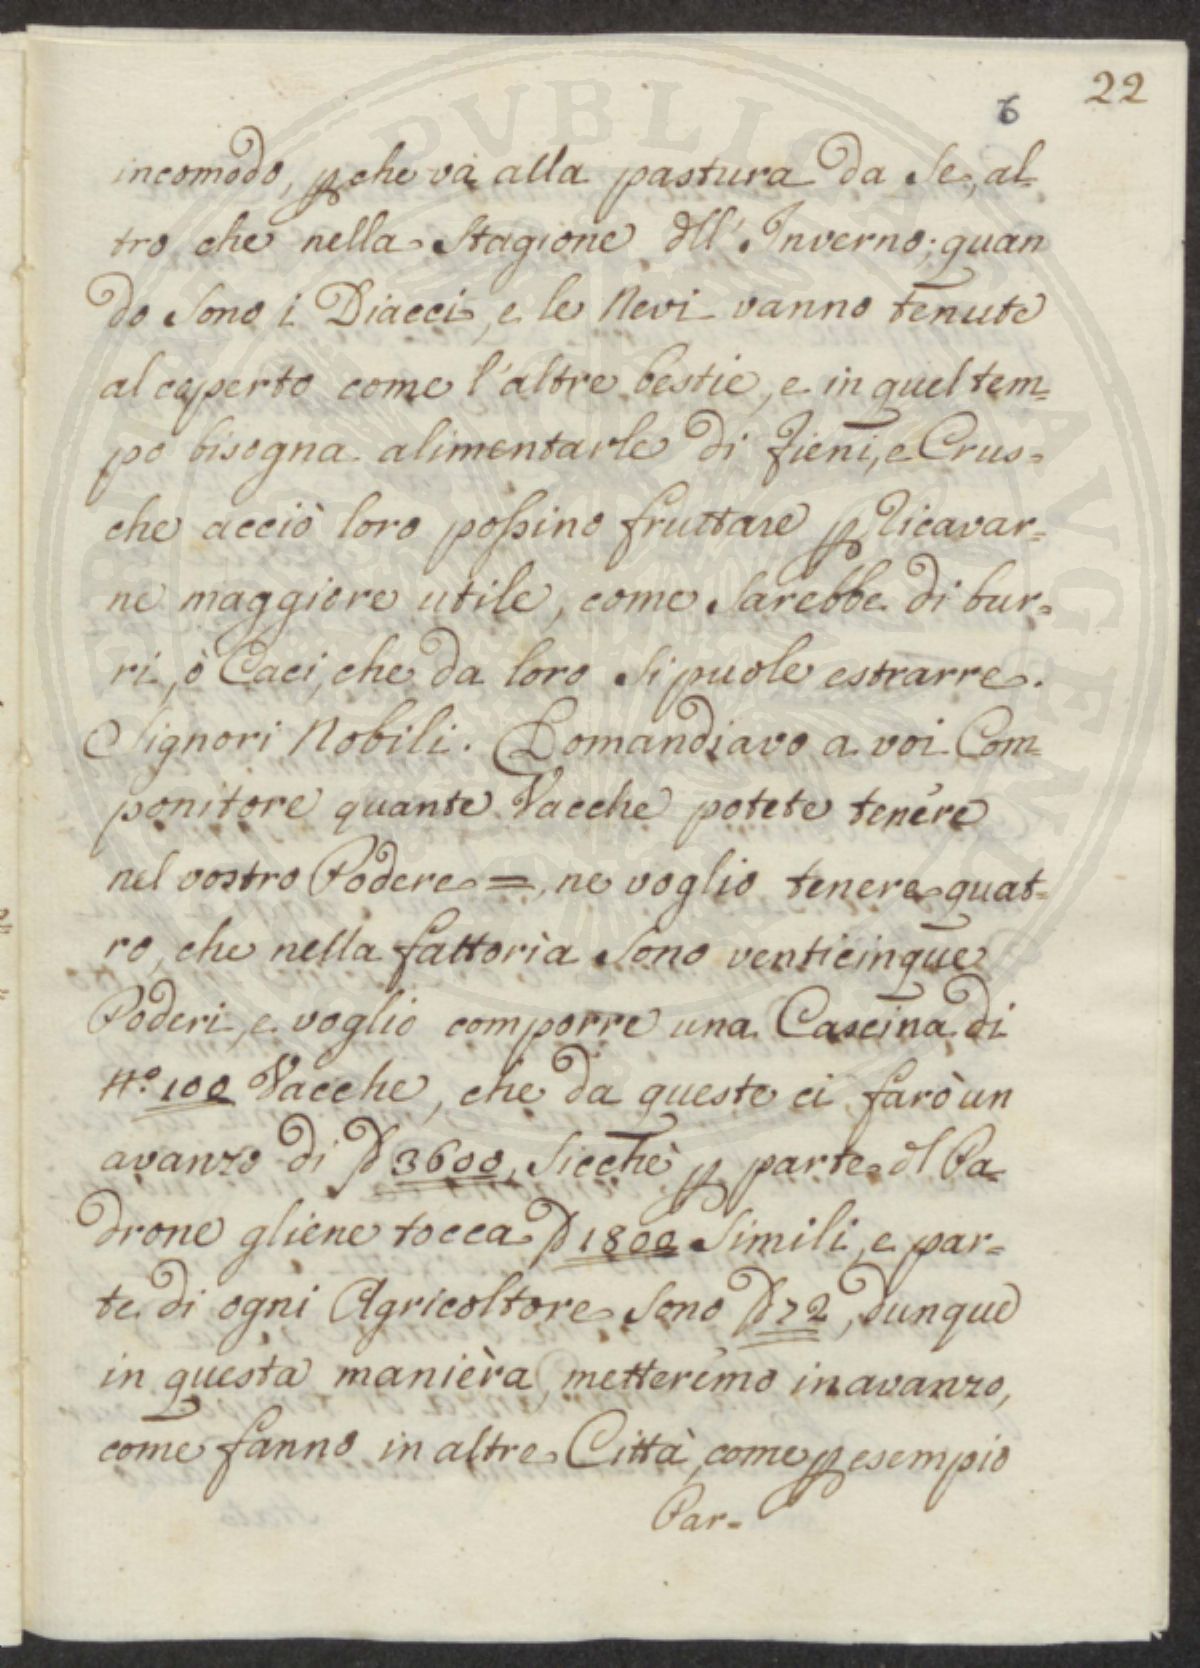 22
6
incomodo, p che và alla pastura da Se, al-
tro che nella Stagione dll' Inverno; quan
do Sono i Diacci, e le Nevi vanno tenute
al coperto come l'altre bestie, e in quel tem=
po bisogna alimentarle di Fieni, e Crus=
che acciò loro poſsino fruttare p Ricavar=
ne maggiore utile, come Sarebbe di bur=
ri, ò Caci, che da loro Si puole estrarre.
Signori Nobili. Domandiavo a voi Com=
ponitore quante Vacche potete tenére
nel vostro Podere =, ne voglio tenere quat=
ro, che nella fattoria Sono venticinque
Poderi, e voglio comporre una Cascina di
N.º 100 Vacche, che da queste ci farò un
avanzo di 3600, Sicchè p parte dl Pa=
drone gliene tocca 1800 Simili, e par=
te di ogni Agricoltore Sono 72, dunque
in questa manièra, metterémo in avanzo,
come fanno in altre Città, come p esempio
Par=
PVBLICA